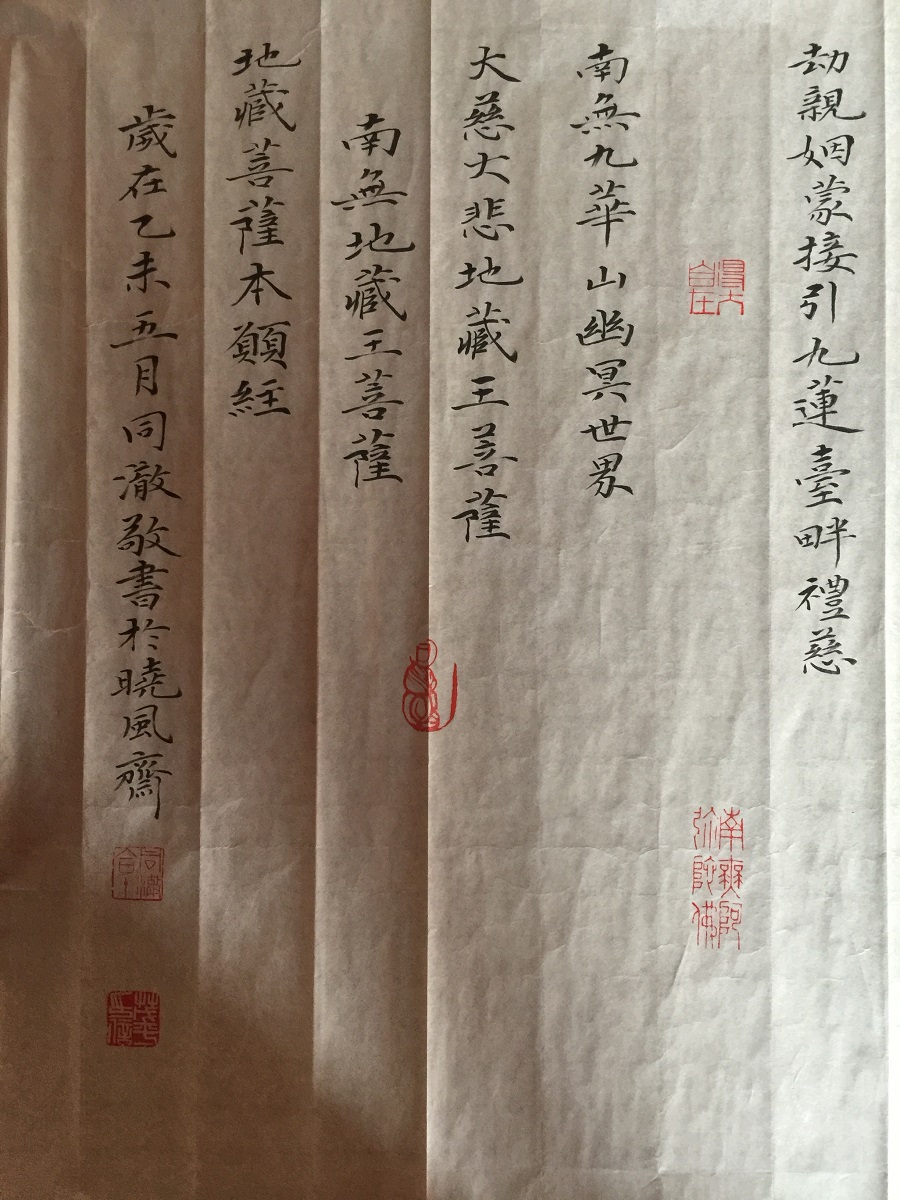 劫親姻蒙接引九蓮臺畔禮慈
得大自在
南無阿彌陀佛
南無九華山幽冥世界
大慈大悲地藏王菩薩
南無地藏王菩薩
地藏菩薩本願經
歲在乙未五月同澈敬書於曉風齋